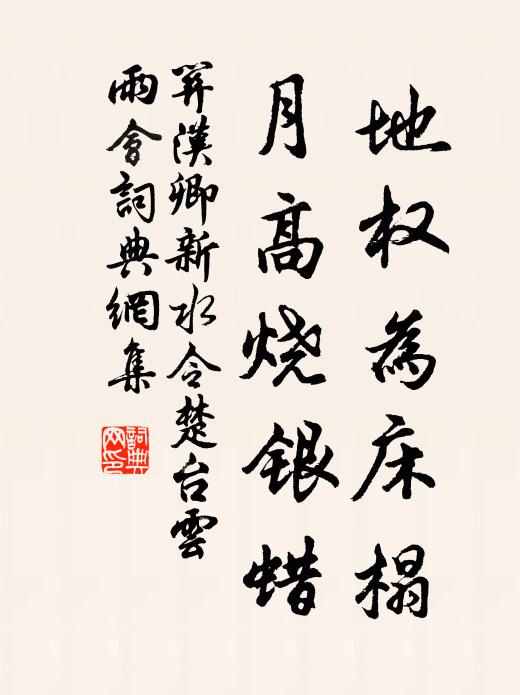 地权為床榻
月高烧银蜡
関漢卿新水令楚台雲
雨會詞典網集
詞典网印